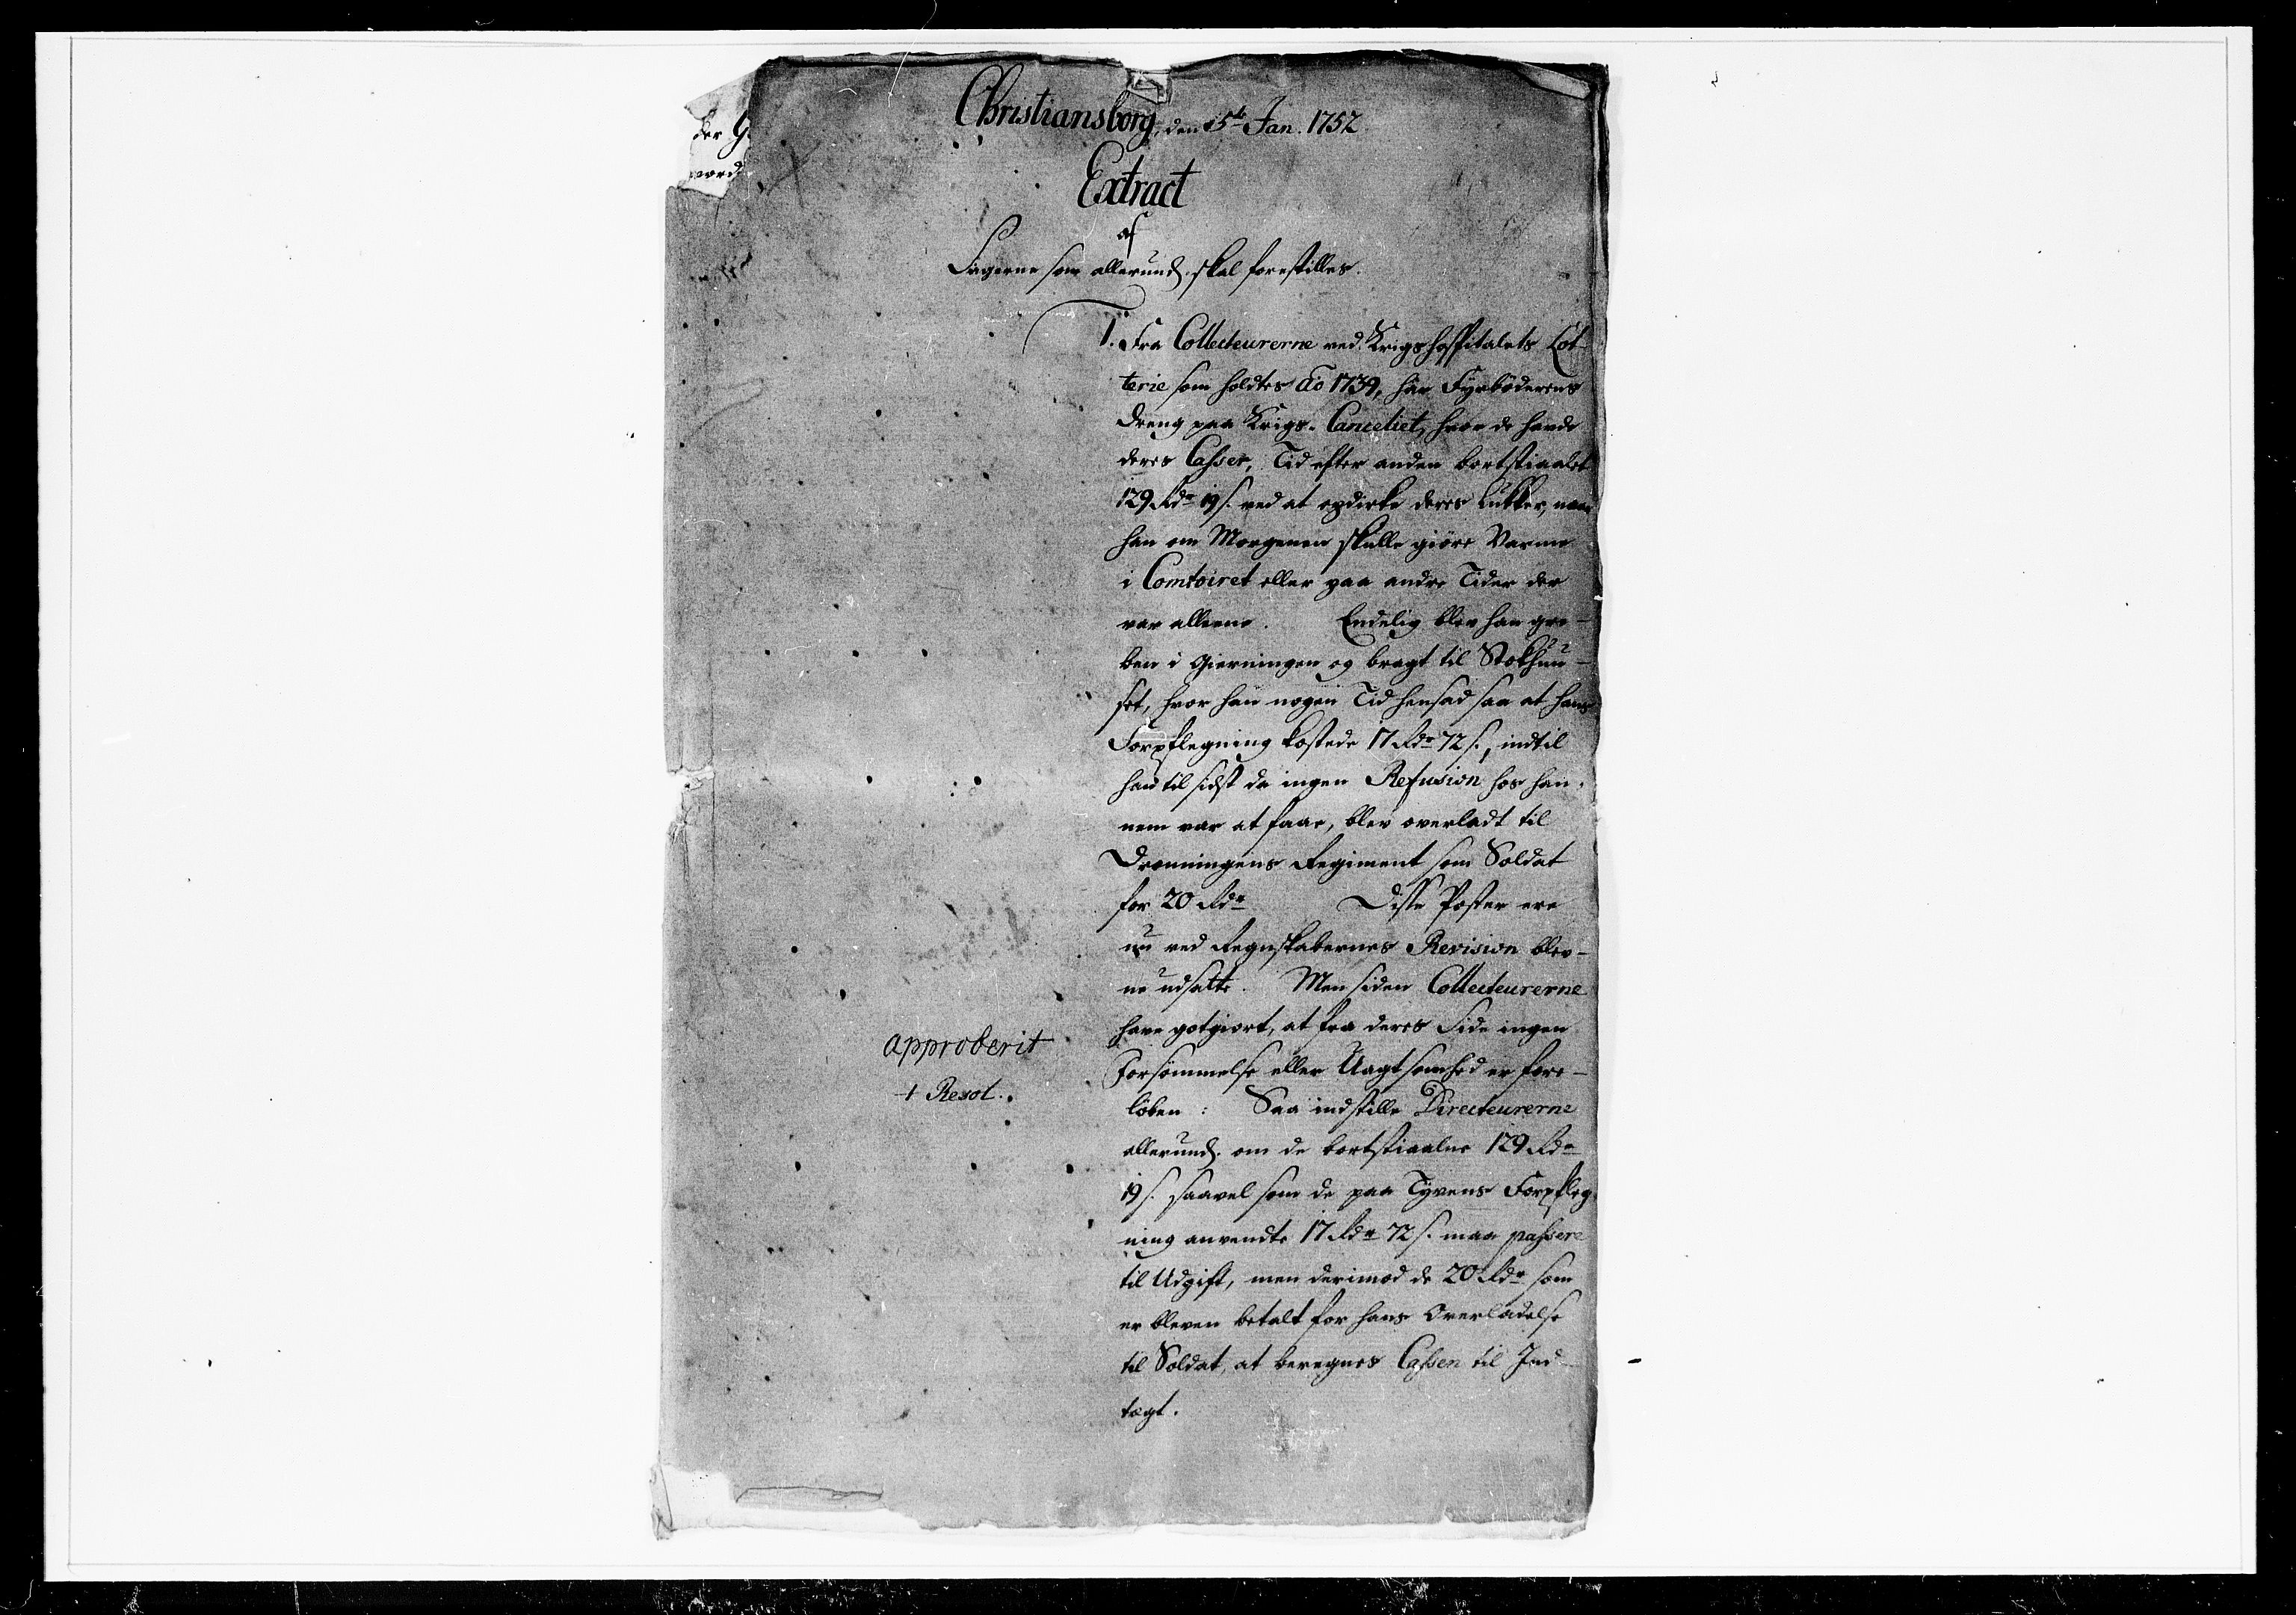 Christiansborg, den 15de Jan. 1752
Extract
af
Sagerne som allerund. skal forestilles.
1. Fra Collecteurerne ved Krigshospitalets Lot-
terie som holdtes Ao 1739, har Fyrbøderens
Dreng paa Krigs-Cancelliet, hvor de havde
deres Casser, Tid efter anden bortstiaalet
129 Rdr 19 s. ved at opdirke deres Lukker, naar
han om Morgenen skulle giøre Varme
i Comtoiret eller paa andre Tider der
var alleene. Endelig blev han gre-
ben i Gierningen og bragt til Stokhuu-
set, hvor han nogen Tid hensad saa at hans
Forpflegning kostede 17 Rdr 72 s., indtil
han til sidst da ingen Refusion hos han-
nem var at faae, blev overladt til
Dronningens Regiment som Soldat
for 20 Rdr Disse Poster ere
nu ved Regnskabernes Revision blev-
ne udsatte. Men siden Collecteurerne
have gotgiort, at fra deres Side ingen
Forsømmelse eller Uagtsomhed er fore-
løben: Saa indstille Directeurerne
allerund. om de bortstiaalne 129 Rdr
19 s. saavel som de paa Tyvens Forpfleg
ning anvendte 17 Rdr 72 s. maa passere
til Udgift, men derimod de 20 Rdr som
er bleven betalt for hans Overladelse
til Soldat, at beregnes Cassen til Ind-
tægt.
approberit
+ Resol.